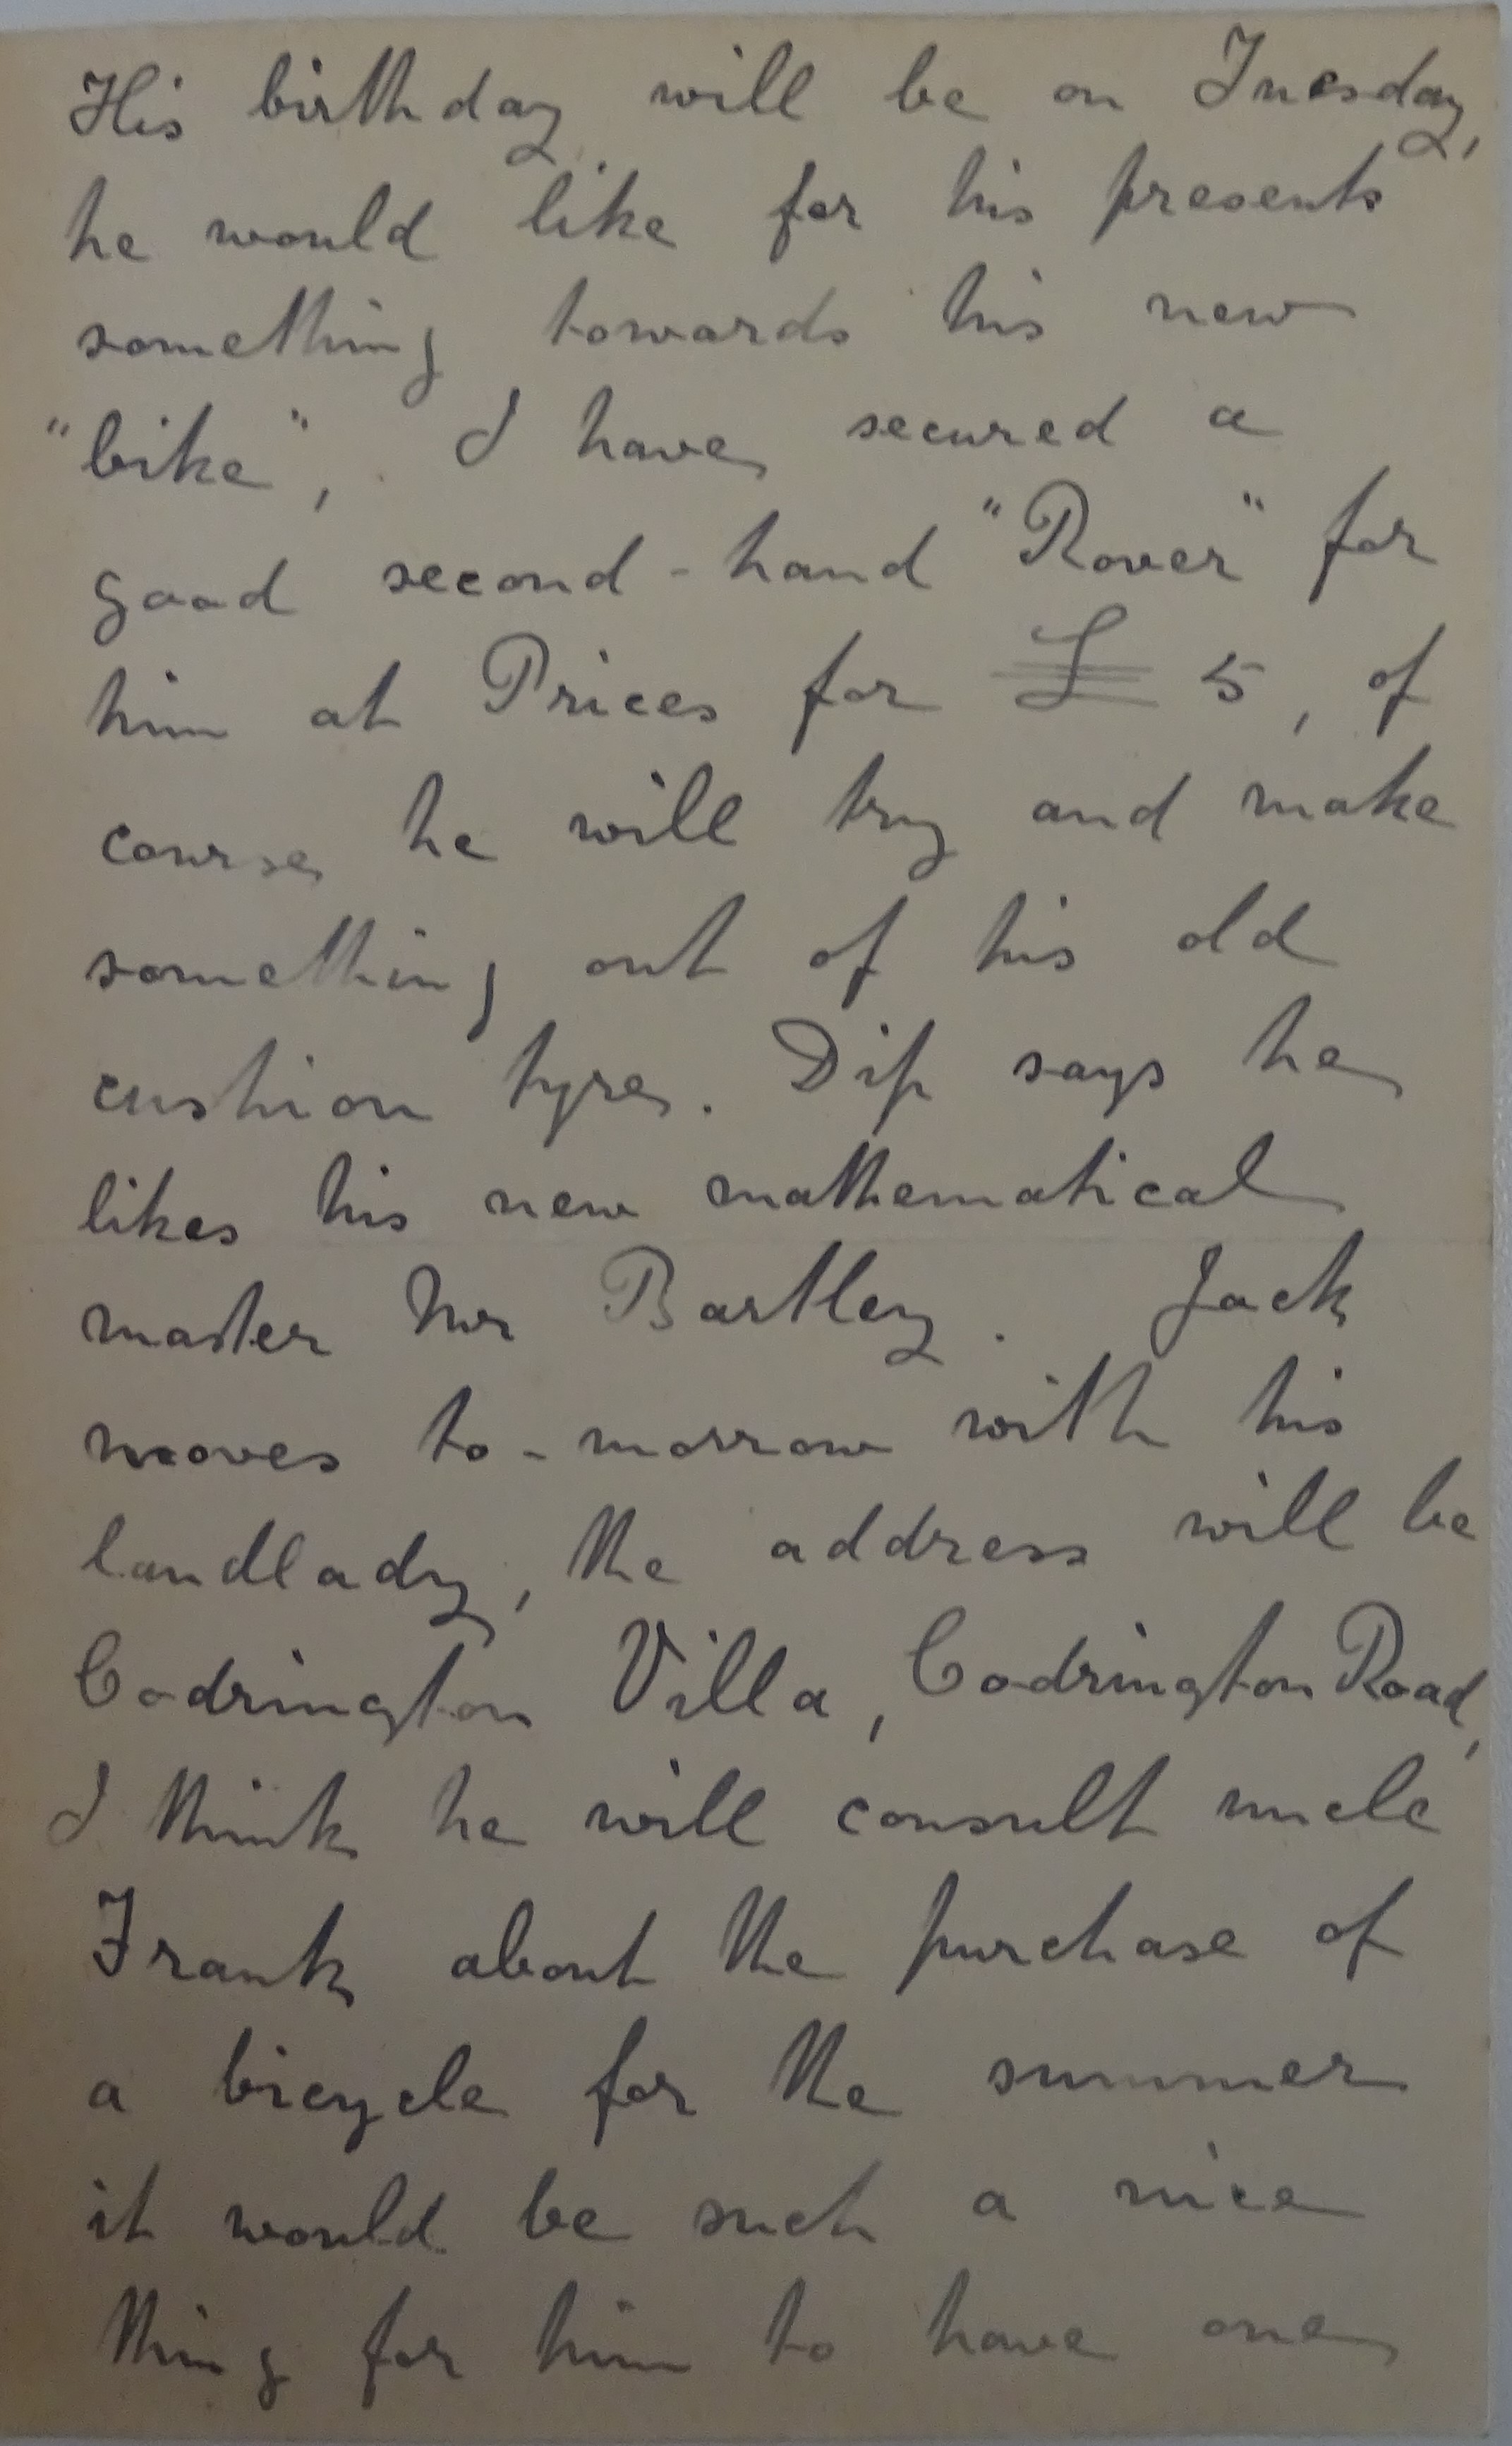 His birthday will be on Tuesday,
he would like for his presents
something towards his new
"bike", I have secured a
good second-hand "Rover" for
him at Prices for £ 5, of
course he will try and make
something out of his old
cushion tyres. Dip says he
likes his new mathematical
master Mr Bartley. Jack
mooves to-morrow with his
landlady, the address will be
Codrington Villa, Codrington Road,
I think he will consult uncle
Frank about the purchase of
a bicycle for the summer
it would be such a nice
thing for him to have one